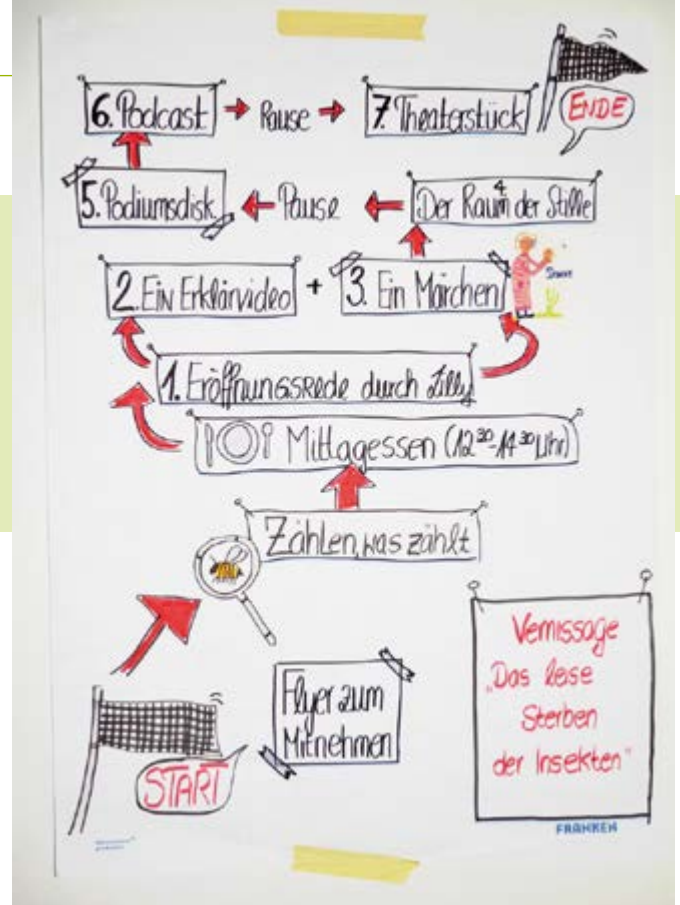 6. Podcast → Pause → 7. Theaterstück
ENDE
5. Podiumsdisk. ← Pause ← 4 Der Raum der Stille
2. Ein Erklärvideo + 3. Ein Märchen
1. Eröffnungsrede durch Zilly
Mittagessen (12³⁰-14³⁰ Uhr)
Zählen, was zählt
Flyer zum
Mitnehmen
START
Vernissage
"Das leise
Sterben
der Insekten"
FRANKEN